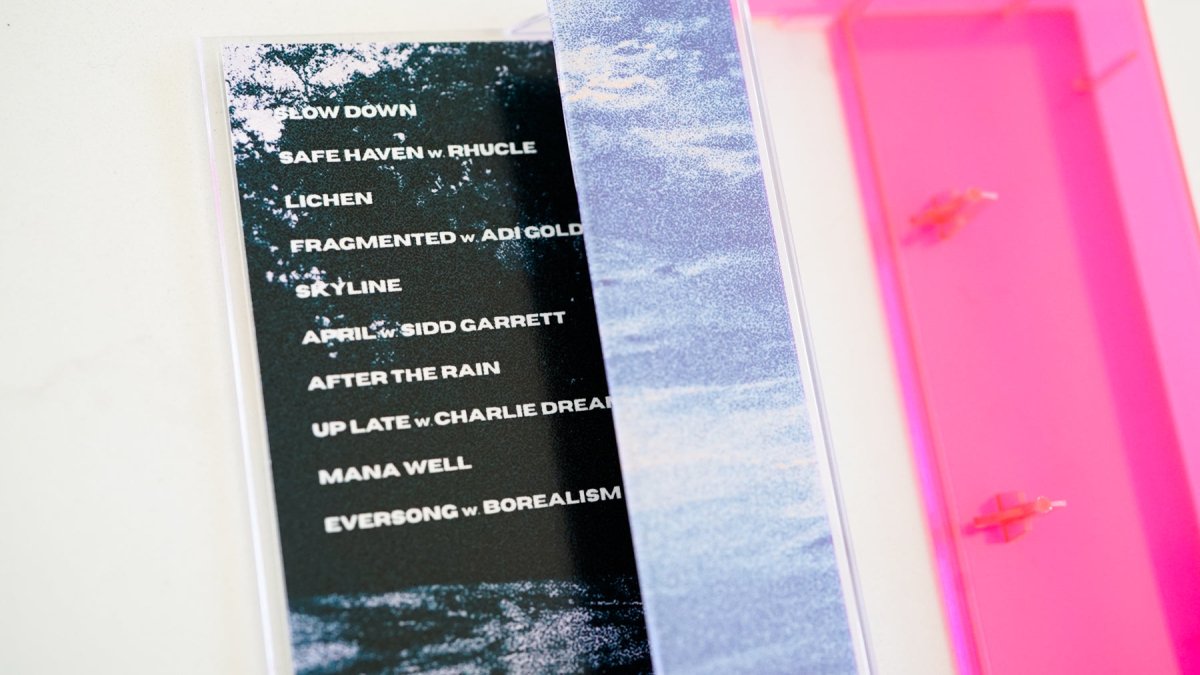 SLOW DOWN
SAFE HAVEN w. RHUCLE
LICHEN
FRAGMENTED w. ADI GOLD
SKYLINE
APRIL w. SIDD GARRETT
AFTER THE RAIN
UP LATE w. CHARLIE DREAM
MANA WELL
EVERSONG w. BOREALISM